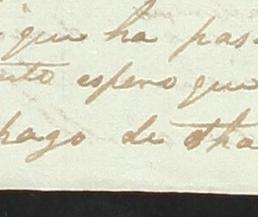 que ha pas
nto espero que
hago de